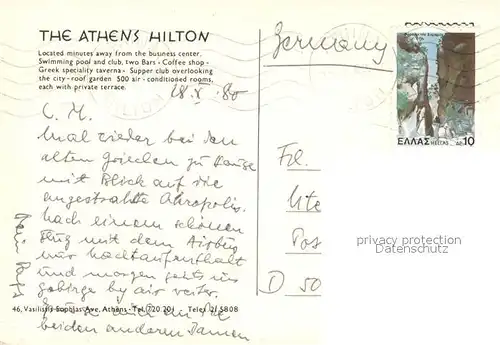 THE ATHENS HILTON
Located minutes away from the business center.
Swimming pool and club, two Bars - Coffee shop -
Greek speciality taverna - Supper club overlooking
the city - roof garden 500 air - conditioned rooms,
each with private terrace.
Germany
18.X.80
L. M.
Mal wieder bei den
alten Griechen zu Hause
mit Blick auf die
angestrahlte Akropolis.
Nach einem schönen
Flug mit dem Airbus
nur Nachtaufenthalt
und morgen gehts ins
Gebirge by air weiter.
beiden anderen Damen
Frl.
Ute
Pos
D 50
ΕΛΛΑΣ HELLAS ΔΡ 10
privacy protection
Datenschutz
46, Vasilissis Sophias Ave, Athens - Tel. 720.201 Telex 21 5808